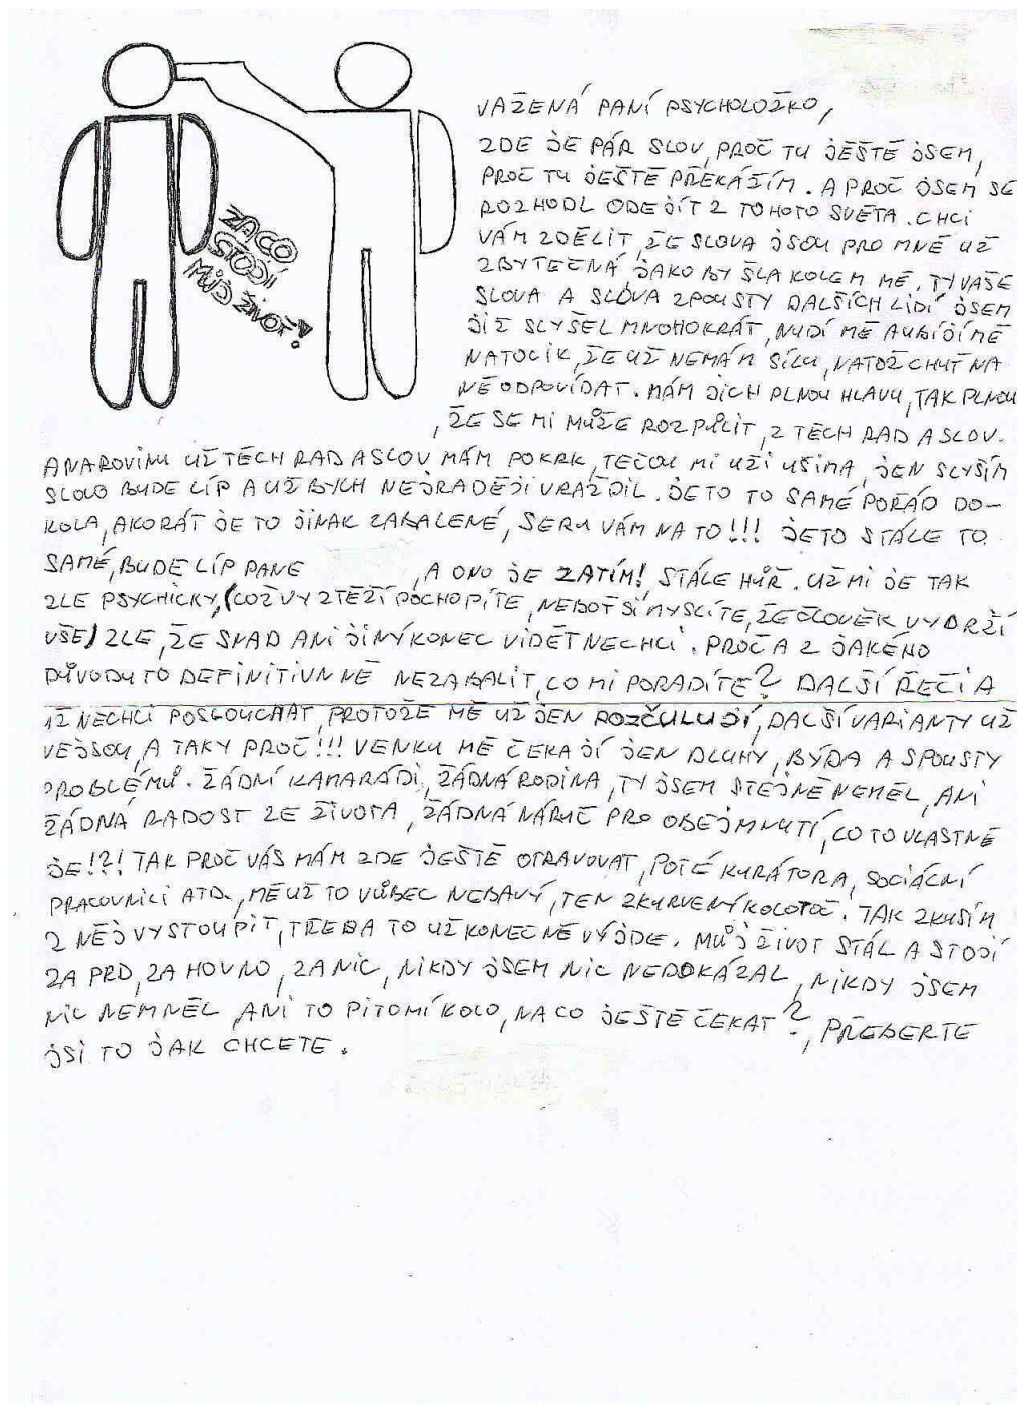 ZA CO
STOJÍ
MŮJ ŽIVOT!
VAŽENÁ PANÍ PSYCHOLOŽKO,
ZDE JE PÁR SLOV, PROČ TU JEŠTĚ JSEM,
PROČ TU JEŠTĚ PŘEKÁŽÍM. A PROČ JSEM SE
ROZHODL ODEJÍT Z TOHOTO SVĚTA. CHCI
VÁM ZDĚLIT, ŽE SLOVA JSOU PRO MNĚ UŽ
ZBYTEČNÁ JAKO BY ŠLA KOLEM MĚ. TY VAŠE
SLOVA A SLOVA ZPOUSTY DALŠÍCH LIDÍ JSEM
JIŽ SLYŠEL MNOHOKRÁT, NUDÍ MĚ A UBÍJÍ MĚ
NATOLIK, ŽE UŽ NEMÁM SÍLU, NATOŽ CHUŤ NA
NĚ ODPOVÍDAT. MÁM JICH PLNOU HLAVU, TAK PLNOU
, ŽE SE MI MŮŽE ROZPŮLIT, Z TĚCH RAD A SLOV.
A NAROVINU UŽ TĚCH RAD A SLOV MÁM POKRK, TEČOU MI UŽI UŠIMA, JEN SLYŠÍM
SLOVO BUDE LÍP A UŽ BYCH NEJRADĚJI VRAŽDIL. JE TO TO SAMÉ POŘÁD DO-
KOLA, AKORÁT JE TO JINAK ZABALENÉ, SERU VÁM NA TO!!! JE TO STÁLE TO
SAMÉ, BUDE LÍP PANE , A ONO JE ZATÍM! STÁLE HŮŘ. UŽ MI JE TAK
ZLE PSYCHICKY, (COŽ VY ZTĚŽÍ POCHOPÍTE, NEBOŤ SI MYSLÍTE, ŽE ČLOVĚK VYDRŽÍ
VŠE) ZLE, ŽE SNAD ANI JINÝ KONEC VIDĚT NECHCI. PROČ A Z JAKÉHO
DŮVODU TO DEFINITIVNNĚ NEZABALIT, CO MI PORADÍTE? DALŠÍ ŘEČI A
UŽ NECHCI POSLOUCHAT, PROTOŽE MĚ UŽ JEN ROZČULUJÍ, DALŠÍ VARIANTY UŽ
NEJSOU, A TAKY PROČ!!! VENKU MĚ ČEKAJÍ JEN DLUHY, BÝDA A SPOUSTY
PROBLÉMŮ. ŽÁDNÍ KAMARÁDI, ŽÁDNÁ RODINA, TY JSEM STEJNĚ NEMĚL, ANI
ŽÁDNÁ RADOST ZE ŽIVOTA, ŽÁDNÁ NÁRUČ PRO OBEJMNUTÍ, CO TO VLASTNĚ
JE!?! TAK PROČ VÁS MÁM ZDE JEŠTĚ OTRAVOVAT, POTÉ KURÁTORA, SOCIÁLNÍ
PRACOVNICI ATD., MĚ UŽ TO VŮBEC NEBAVÝ, TEN ZKURVENÝ KOLOTOČ. TAK ZKUSÍM
Z NĚJ VYSTOUPIT, TŘEBA TO UŽ KONEČNĚ VYJDE. MŮJ ŽIVOT STÁL A STOJÍ
ZA PRD, ZA HOVNO, ZA NIC, NIKDY JSEM NIC NEDOKÁZAL, NIKDY JSEM
NIC NEMNĚL, ANI TO PITOMÍ KOLO, NA CO JEŠTĚ ČEKAT?, PŘEBERTE
JSI TO JAK CHCETE.